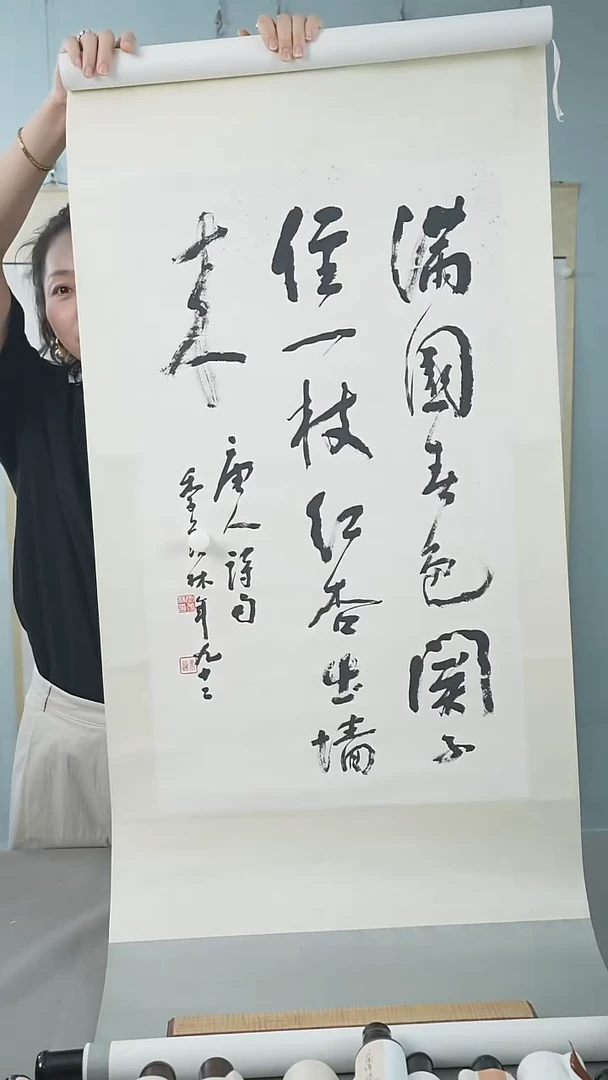 满園春色関不
住一枝红杏出墙
来
唐人詩句
季羡林年九十二